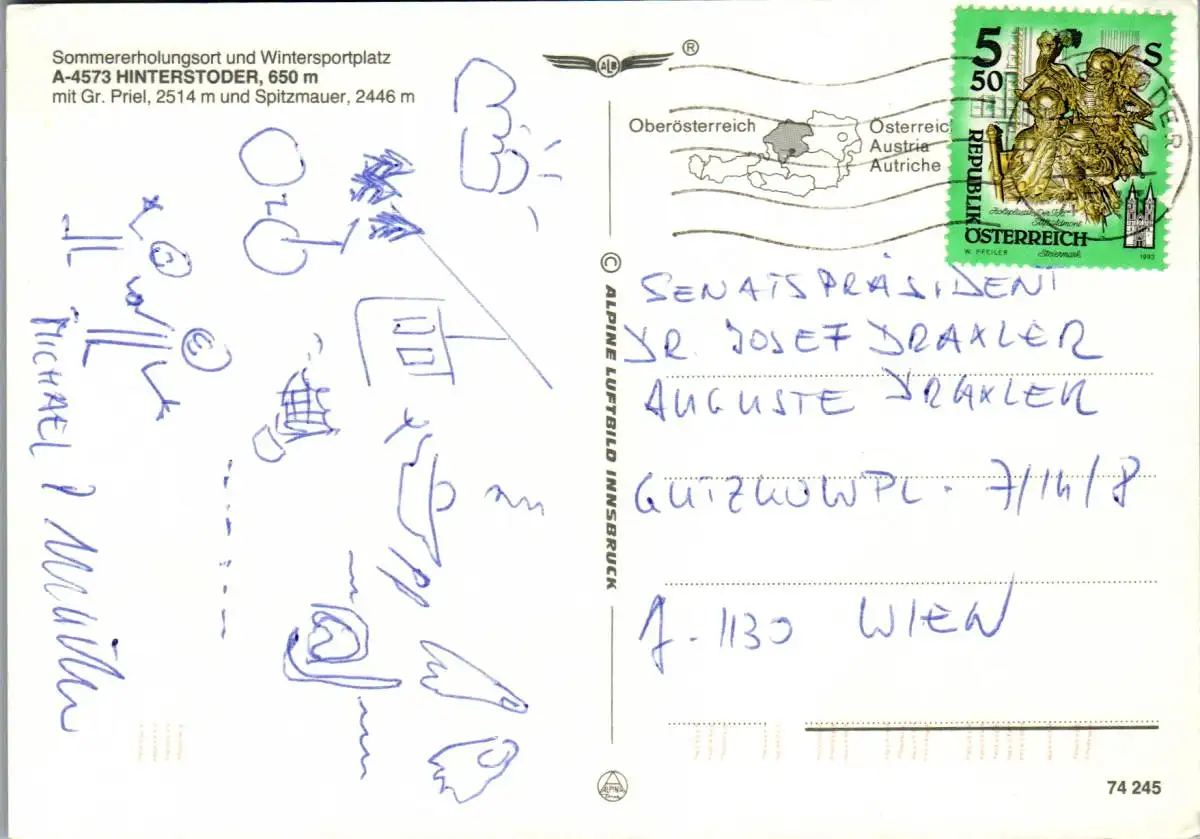 Sommererholungsort und Wintersportplatz
A-4573 HINTERSTODER, 650 m
mit Gr. Priel, 2514 m und Spitzmauer, 2446 m
ALB
®
Oberösterreich
Österreich
Austria
Autriche
5
50
S
REPUBLIK
ÖSTERREICH
Steiermark
W. PFEILER
1993
ODER
© ALPINE LUFTBILD INNSBRUCK
SENATSPRÄSIDENT
DR. JOSEF DRAXLER
AUGUSTE DRAXLER
GUTZKOWPL. 7/14/8
A-1130 WIEN
MICHAEL
74 245